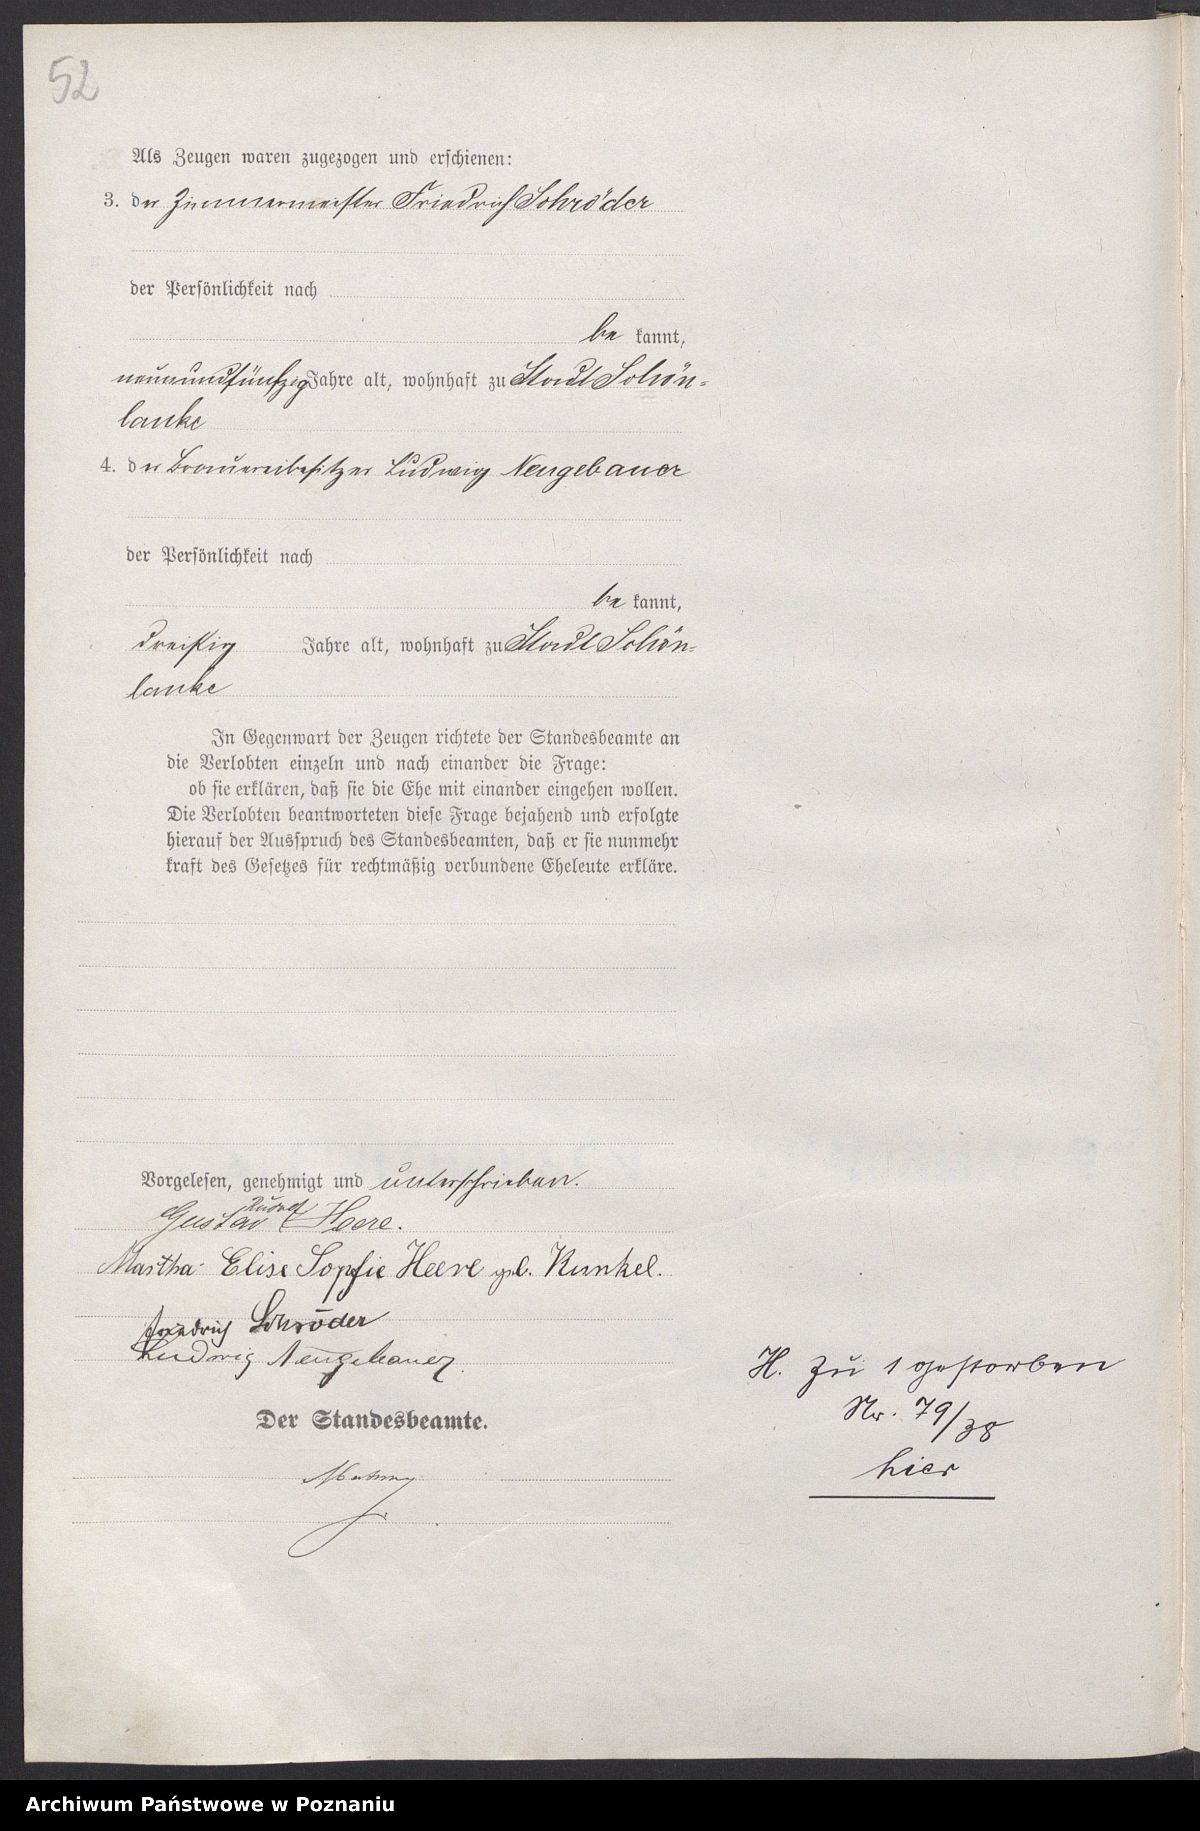 52
Als Zeugen waren zugezogen und erschienen:
3. der Zimmermeister Friedrich Schröder
der Persönlichkeit nach
be kannt,
neunundfünfzig Jahre alt, wohnhaft zu Stadt Schön-
lanke
4. der Brauereibesitzer Ludwig Neugebauer
der Persönlichkeit nach
be kannt,
dreißig Jahre alt, wohnhaft zu Stadt Schön-
lanke
In Gegenwart der Zeugen richtete der Standesbeamte an
die Verlobten einzeln und nach einander die Frage:
ob sie erklären, daß sie die Ehe mit einander eingehen wollen.
Die Verlobten beantworteten diese Frage bejahend und erfolgte
hierauf der Ausspruch des Standesbeamten, daß er sie nunmehr
kraft des Gesetzes für rechtmäßig verbundene Eheleute erkläre.
Vorgelesen, genehmigt und unterschrieben.
Gustav Heere.
Martha Elise Sopfie Heere geb. Kunkel.
Friedrich Schröder
Ludwig Neugebauer.
Der Standesbeamte.
H. zu 1 gestorben
Nr. 79/38
hier
Archiwum Państwowe w Poznaniu